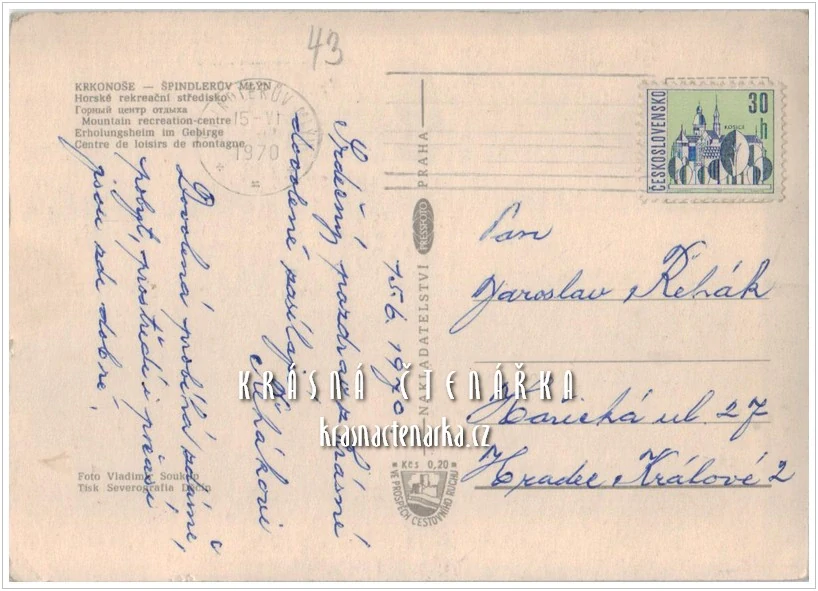 43
KRKONOŠE — ŠPINDLERŮV MLÝN
Horské rekreační středisko
Горный центр отдыха
Mountain recreation-centre
Erholungsheim im Gebirge
Centre de loisirs de montagne
15-VI
1970
ČESKOSLOVENSKO
30
h
KOŠICE
15.6.1970
Srdečný pozdrav z krásné
dovolené posílají
Řehákovi
Dovolená probíhá známě,
pobyt, prostředí i počasí
jsou zde dobré.
NAKLADATELSTVÍ PRESSFOTO PRAHA
Pan
Jaroslav Řehák
Hořická ul. 27
Hradec Králové 2
KRÁSNÁ ČTENÁŘKA
krasnactenarka.cz
Kčs 0,20
VE PROSPĚCH CESTOVNÍHO RUCHU
Foto Vladimír Soukup
Tisk Severografia Děčín